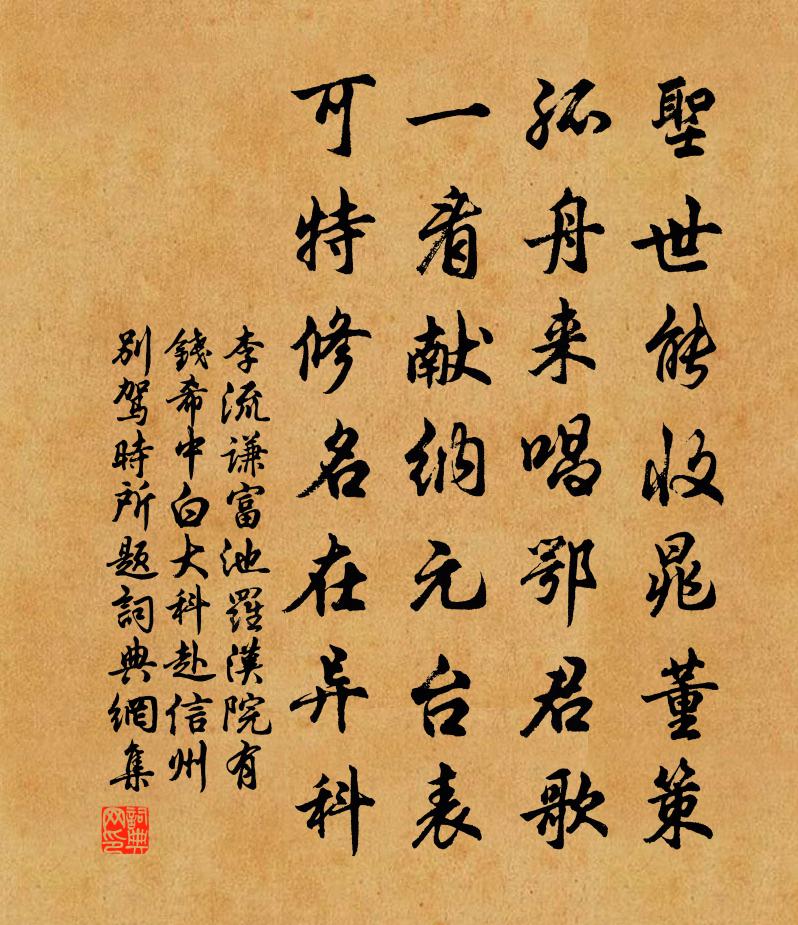 聖世能收晁董策
孤舟来唱鄂君歌
一看献纳元台表
可特修名在异科
李流谦富池羅漢院有
錢希中白大科赴信州
別駕時所題詞典網集
詞典网印